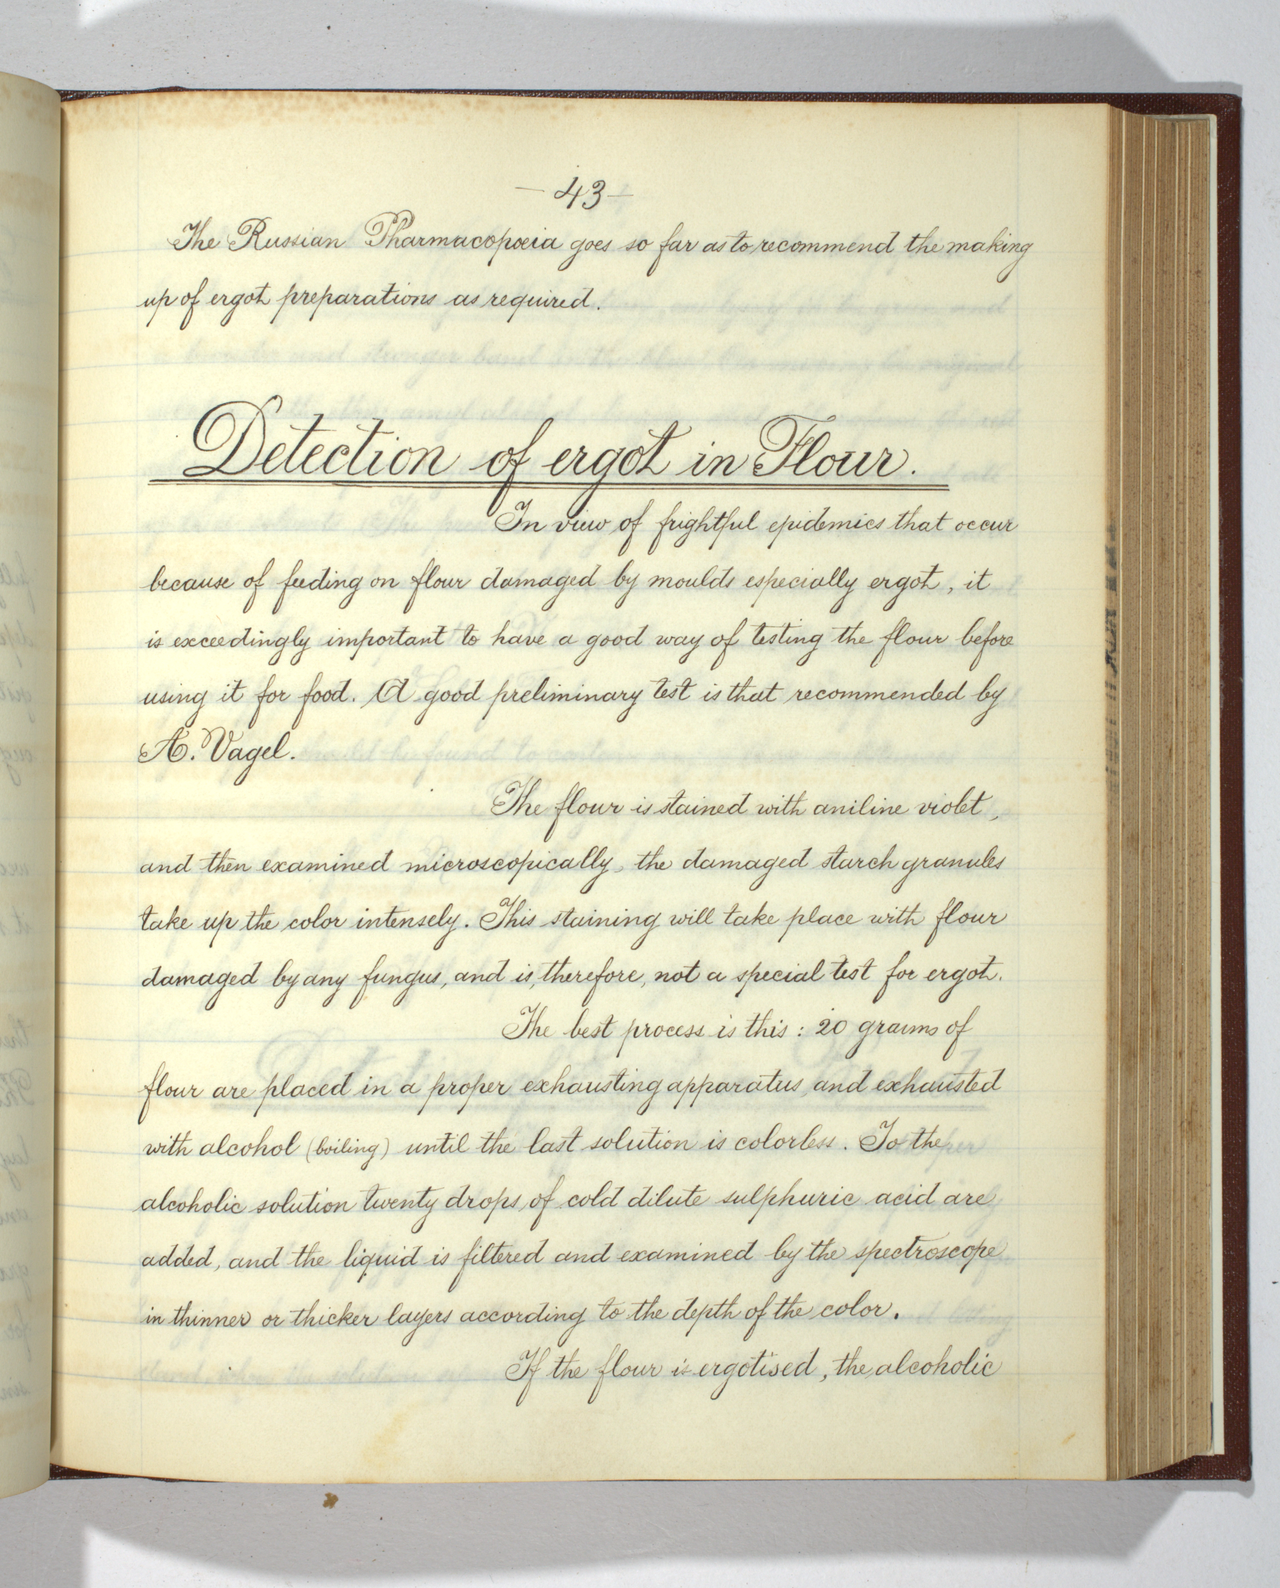 — 43 —
The Russian Pharmacopœia goes so far as to recommend the making
up of ergot preparations as required.
Detection of ergot in Flour.
In view of frightful epidemics that occur
because of feeding on flour damaged by moulds especially ergot, it
is exceedingly important to have a good way of testing the flour before
using it for food. A good preliminary test is that recommended by
A. Vagel.
The flour is stained with aniline violet,
and then examined microscopically, the damaged starch granules
take up the color intensely. This staining will take place with flour
damaged by any fungus, and is, therefore, not a special test for ergot.
The best process is this: 20 grams of
flour are placed in a proper exhausting apparatus and exhausted
with alcohol (boiling) until the last solution is colorless. To the
alcoholic solution twenty drops of cold dilute sulphuric acid are
added, and the liquid is filtered and examined by the spectroscope
in thinner or thicker layers according to the depth of the color.
If the flour is ergotised, the alcoholic